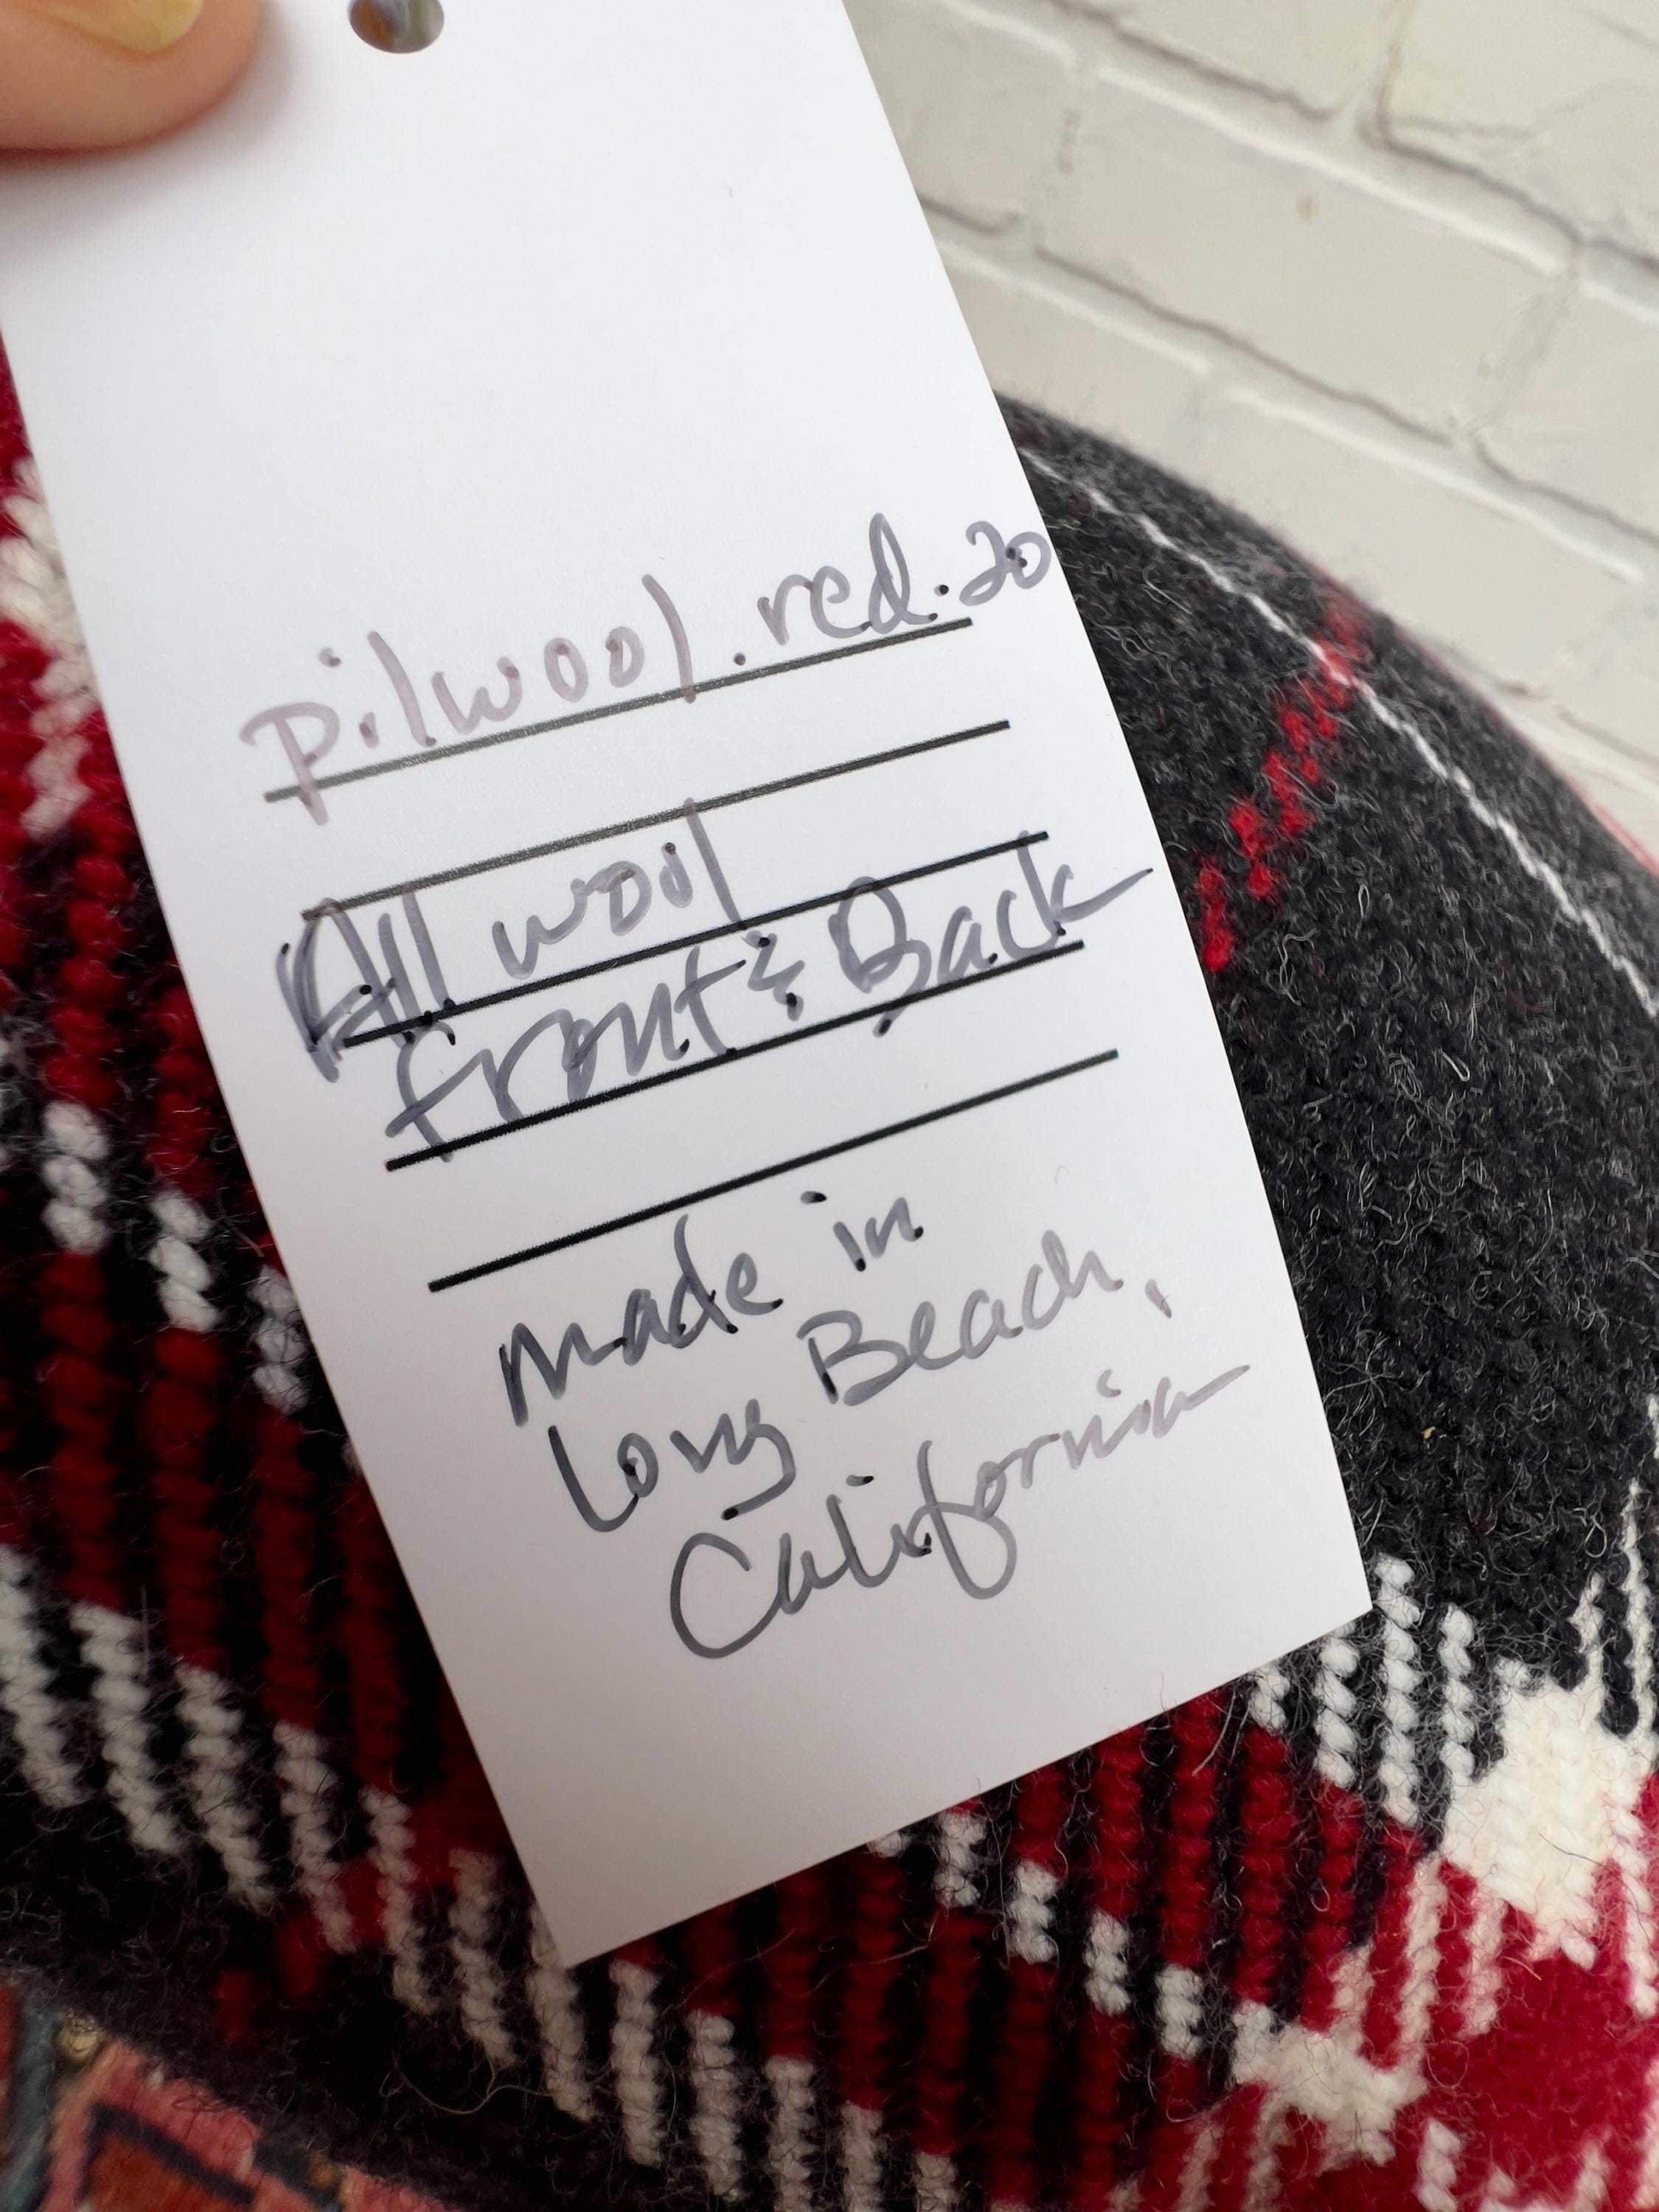 pilwool.red.20
All wool
front & Back
made in
Long Beach,
California